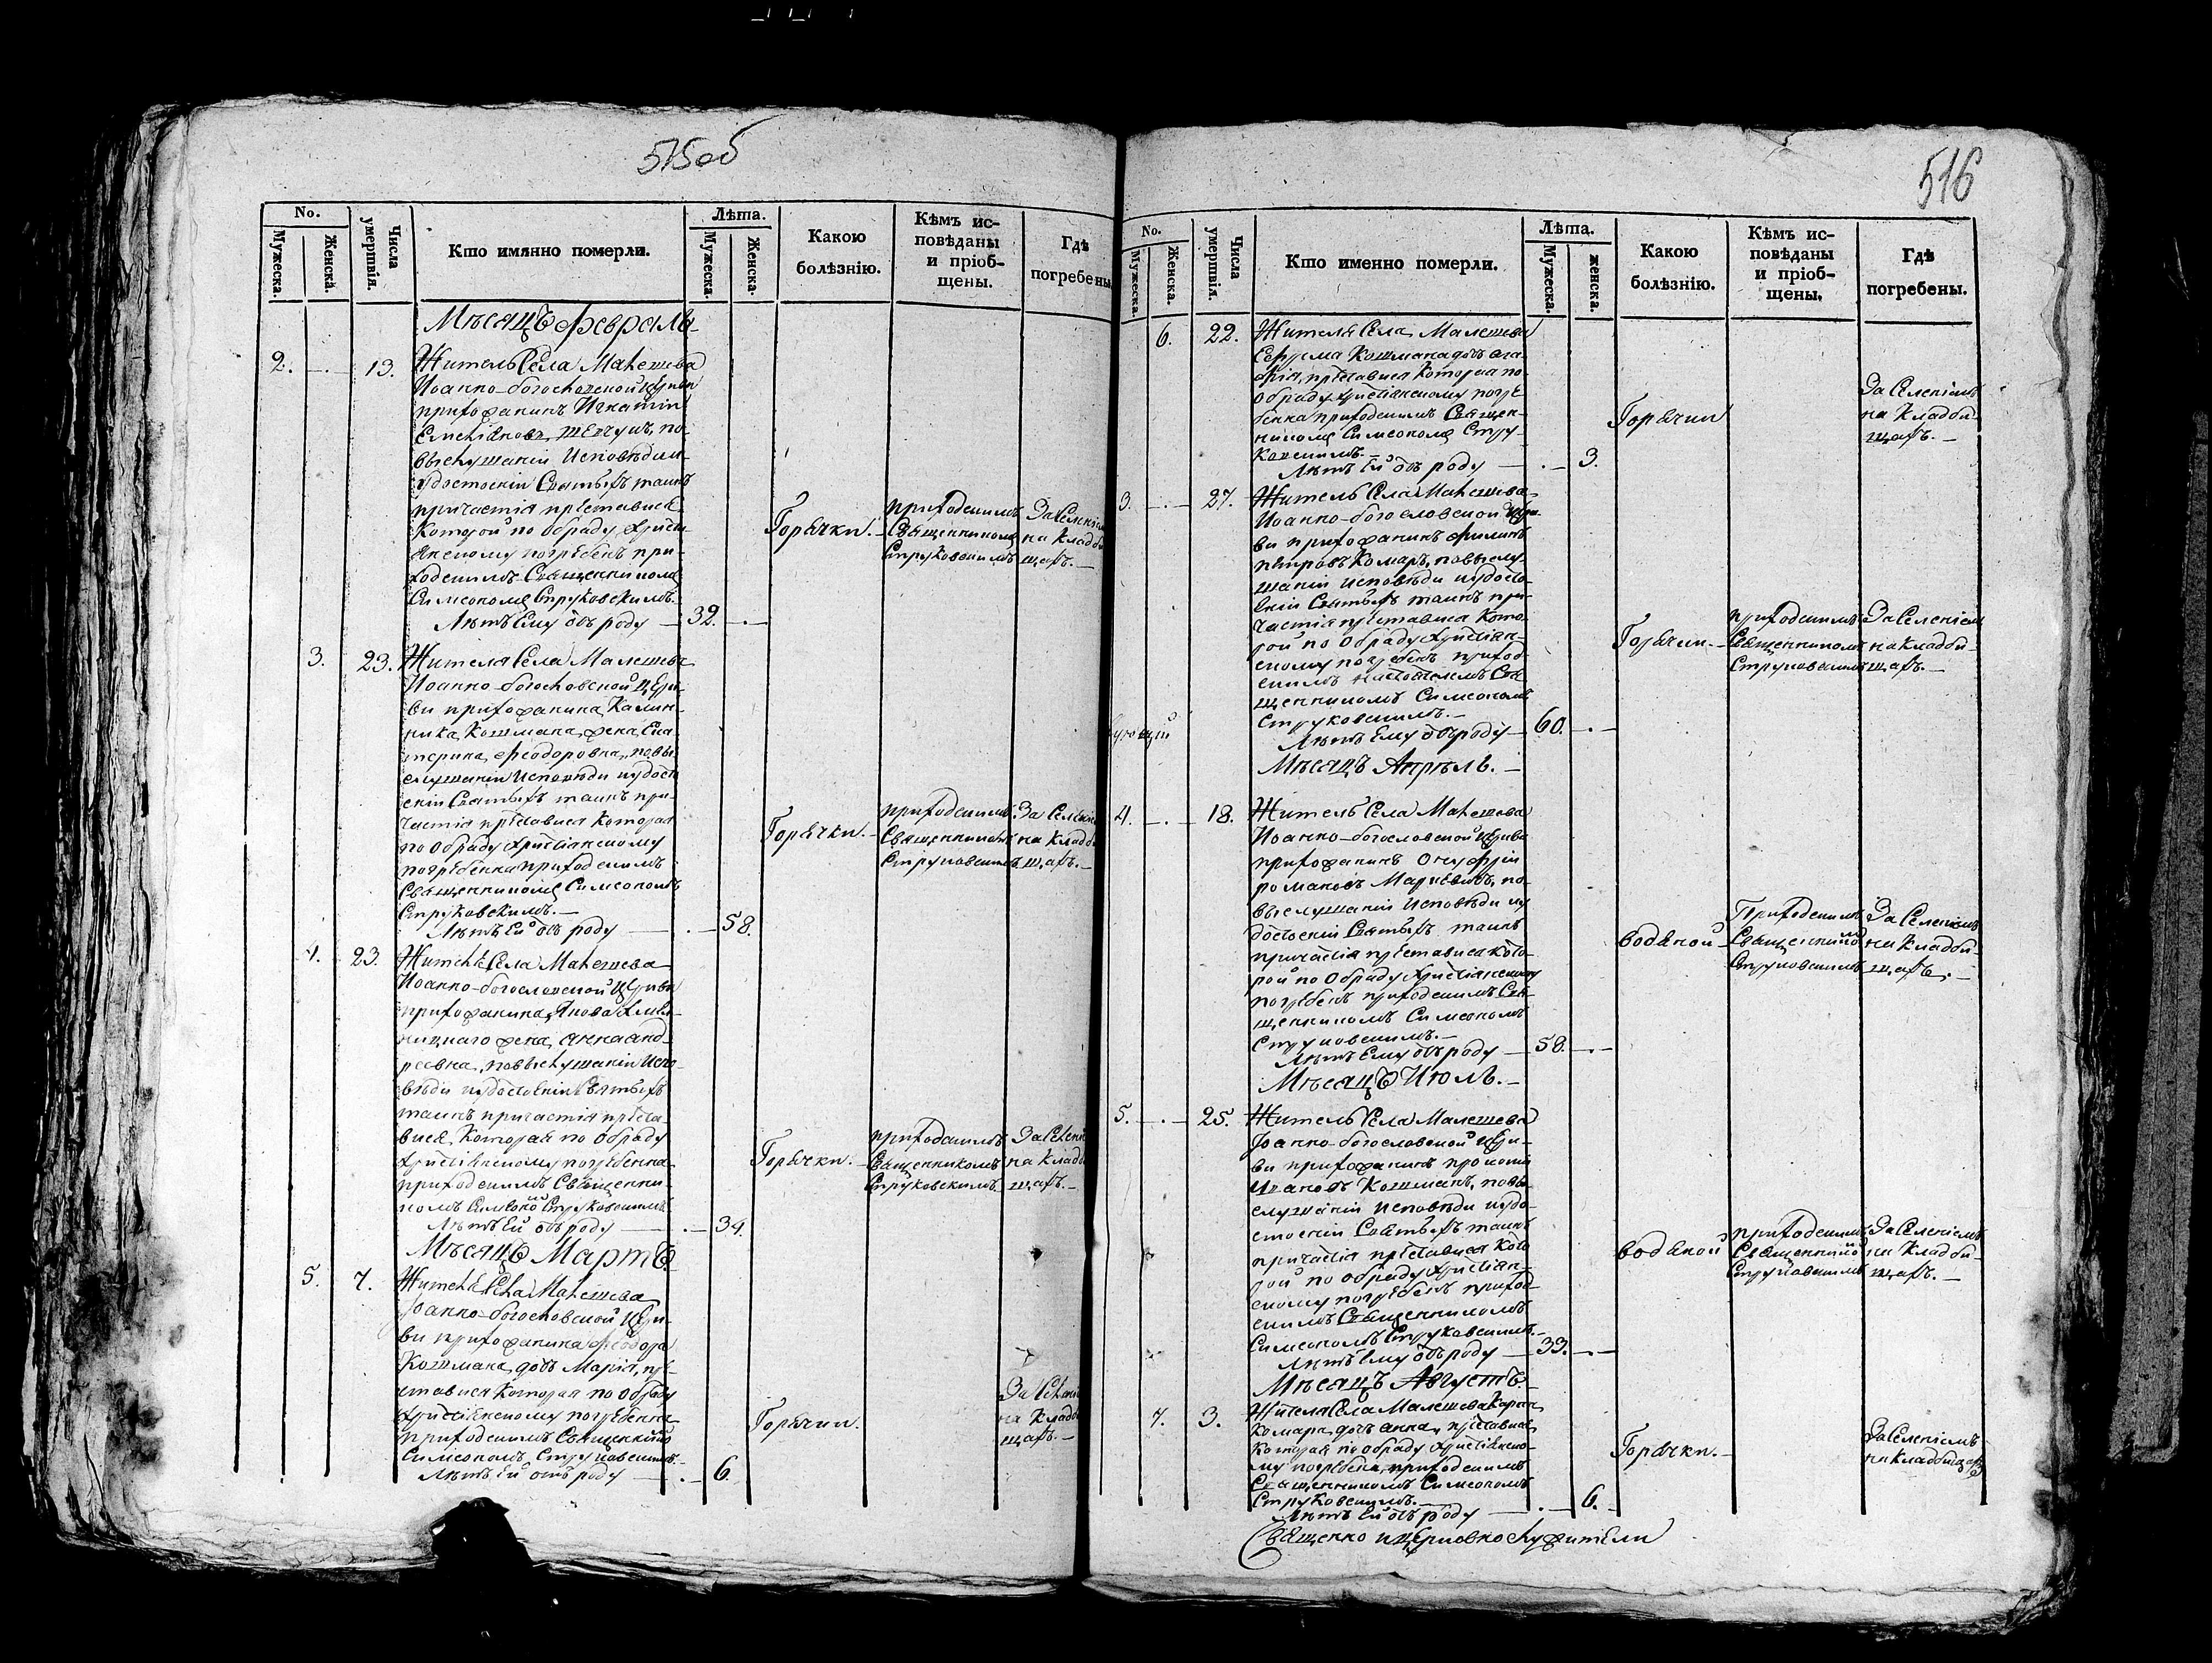 515об
No.
Мужеска.
Женска.
Числа умертвія.
Кто имянно померли.
Лѣта.
Мужеска.
Женска.
Какою болѣзнію.
Кѣмъ ис-
повѣданы
и пріоб-
щены.
Гдѣ
погребены
Мѣсяцъ февраль
2. — 13. Житель Села Малешева
Иоанно-богословской церкви
прихожанинъ Игнатій
Емеліяновъ по
выслушаніи исповѣди и
удостоеніи Святыхъ таинъ
причастія преставися
которой по обряду христи
янскому погребенъ при-
ходскимъ Священникомъ
Симеономъ Струковскимъ.
Лѣтъ Ему отъ роду — 32. —
Горячки.
приходскимъ
Священникомъ
Струковскимъ
За Селеніем
на кладби
щахъ. —
3. 23. Жителя Села Малешева
Иоанно-богословской церк-
ви прихожанина Калин-
ника Кошмана жена Ека-
терина Феодоровна, по вы-
слушаніи исповѣди и удосто
еніи Святыхъ таинъ при-
частія преставися которая
по обряду христіянскому
погребенна приходскимъ
Священникомъ Симеономъ
Струковскимъ. —
Лѣтъ Ей отъ роду — 58.
Горячки. —
приходскимъ
Священникомъ
Струковскимъ
За Селені
на кладби
щахъ. —
4. 23. Жителя Села Малешева
Иоанно-богословской церкви
прихожанина Якова
жена, Анна Анд-
реевна, по выслушаніи испо-
вѣди и удостоеніи Святыхъ
таинъ причастія преста-
вися которая по обряду
христіянскому погребенна
приходскимъ Священни-
комъ Симеономъ Струковскимъ
Лѣтъ Ей отъ роду — 34.
Горячки. —
приходскимъ
Священникомъ
Струковскимъ
За Селені
на кладби
щахъ. —
Мѣсяцъ Мартъ
5. 7. Жителя Села Малешева
Иоанно-богословской церк-
ви прихожанина Феодора
Кошмана дочь Марія, пре-
ставися которая по обряду
христіянскому погребенна
приходскимъ Священнико
Симеономъ Струковскимъ.
Лѣтъ Ей отъ роду — 6.
Горячки.
За Селені
на кладби
щахъ. —
516
No.
Мужеска.
Женска.
Числа умертвія.
Кто именно померли.
Лѣта.
Мужеска.
женска.
Какою болѣзнію.
Кѣмъ ис-
повѣданы
и пріоб-
щены.
Гдѣ
погребены.
6. 22. Жителя Села Малешева
Кошмана дочь Ага-
фія, преставися которая по
обряду христіянскому погре
бенна приходскимъ Священ-
никомъ Симеономъ Стру-
ковскимъ. —
Лѣтъ Ей отъ роду — 3.
Горячки
За Селеніемъ
на кладби
щахъ. —
3. — 27. Житель Села Малешева
Иоанно-богословской церк-
ви прихожанинъ Филипъ
Петровъ Комаръ, по выслу-
шаніи исповѣди и удосто-
еніи Святыхъ таинъ при-
частія преставися кото-
рой по обряду христіян-
скому погребенъ приход-
скимъ настоятелемъ Свя-
щенникомъ Симеономъ
Струковскимъ. —
Лѣтъ Ему отъ роду — 60. —
Горячки. —
приходскимъ
Священникомъ
Струковскимъ
За Селеніем
на кладби-
щахъ. —
Мѣсяцъ Апрѣль. —
4. — 18. Житель Села Малешева
Иоанно-богословской церкви
прихожанинъ Онуфрій
романовъ по-
выслушаніи исповѣди и у
достоеніи Святыхъ таинъ
причастія преставися кото-
рой по обряду христіянскому
погребенъ приходскимъ Свя-
щенникомъ Симеономъ
Струковскимъ. —
Лѣтъ Ему отъ роду — 58. —
водяной —
Приходскимъ
Священником
Струковскимъ
За Селеніемъ
на кладби-
щахъ. —
Мѣсяцъ Июль. —
5. — 25. Житель Села Малешева
Иоанно-богословской церк-
ви прихожанинъ прокопій
Ивановъ Кошманъ, по вы-
слушаніи исповѣди и удо-
стоеніи Святыхъ таинъ
причастія преставися кото
рой по обряду христіян-
скому погребенъ приход-
скимъ Священникомъ
Симеономъ Струковскимъ. —
Лѣтъ Ему отъ роду — 33. —
водяной
приходскимъ
Священником
Струковскимъ
За Селеніемъ
на кладби-
щахъ. —
Мѣсяцъ Августъ. —
7. 3. Жителя Села Малешева
Комара дочь анна, преставися
которая по обряду христіянско-
му погребена, приходскимъ
Священникомъ Симеономъ
Струковскимъ. —
Лѣтъ Ей отъ роду — 6. —
Горячки. —
За Селеніемъ
на кладбищахъ
Священно и церковно служители